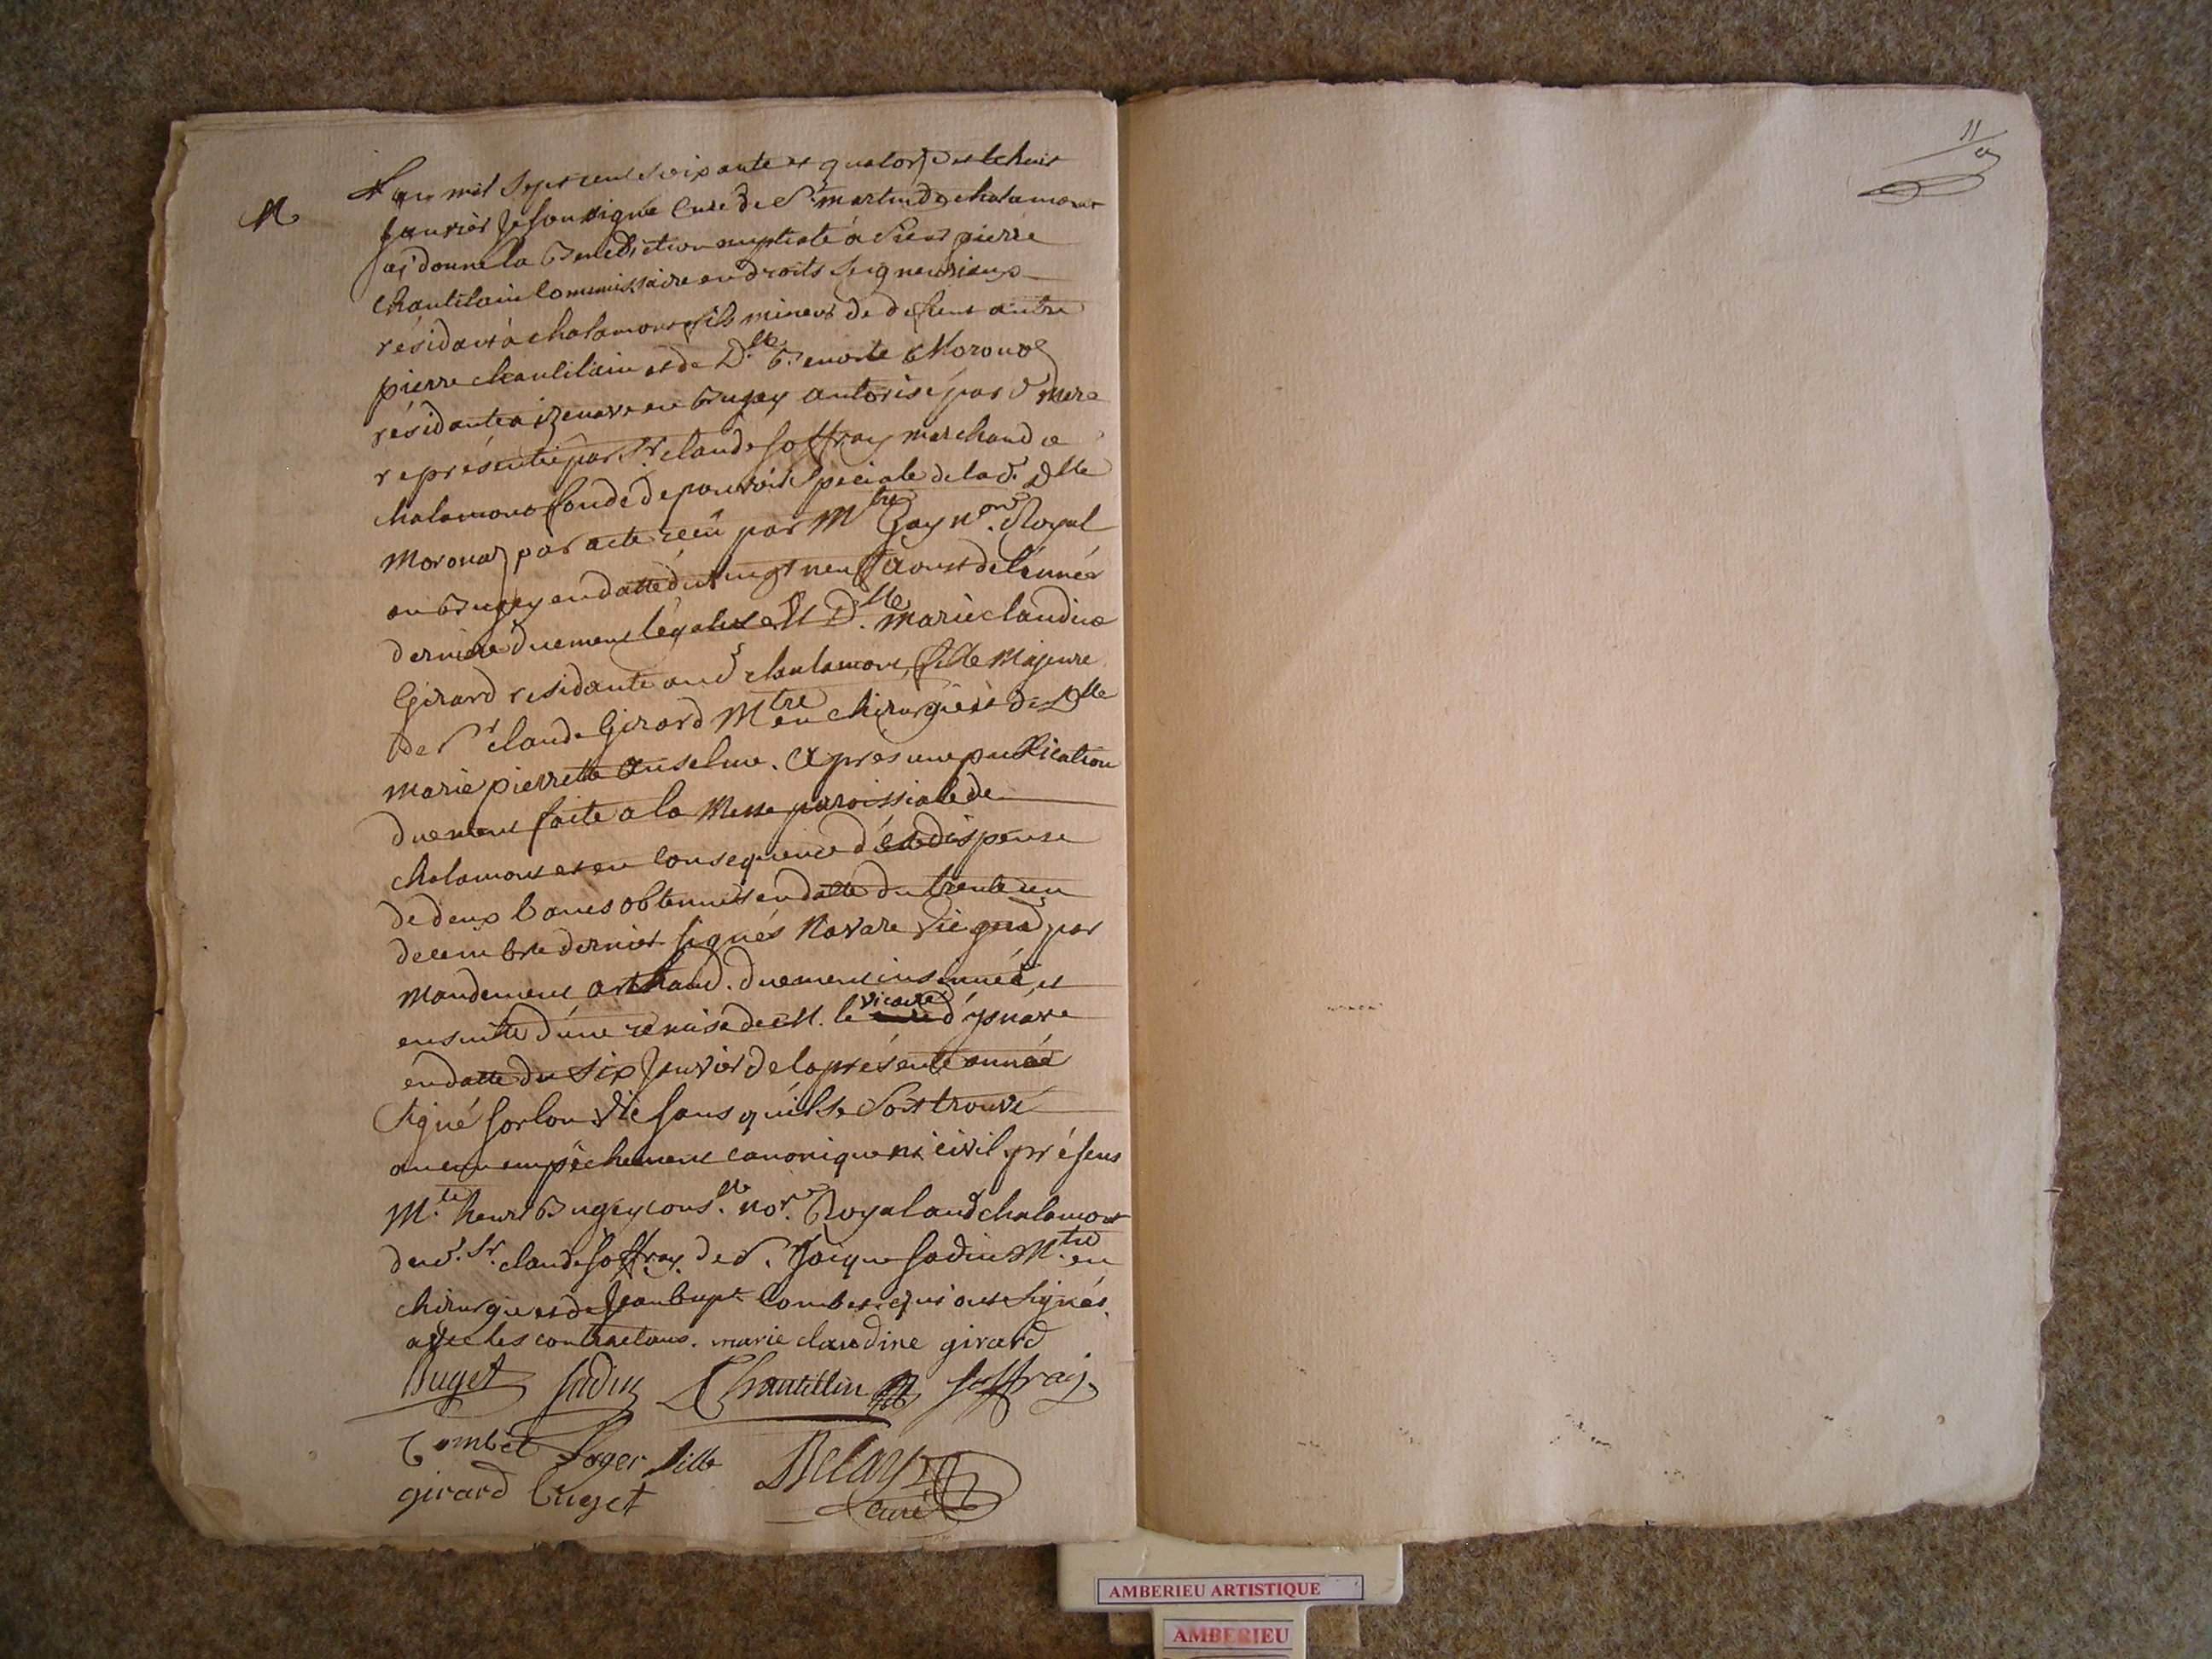 M
L'an mil sept cent soixante et quatorze et le huit
Janvier Je soussigné Curé de St martin de chalamont
ai donné la Benediction nuptiale à Sieur pierre
Chantilain Commissaire en droits seigneuriaux
résidant à chalamont fils mineur de defunt autre
pierre chantilain et de Dlle Benoite Moronoz
résidante a izenave en Bugey autorisé par sd mere
représentée par Sr claude soffray marchand a
chalamont fondé de pouvoir Spéciale de lad. Dlle
Moronoz par acte recû par Mtre Gay Nre Royal
en Bugey en datte du vingt neuf aoust de l'année
derniere duement légalisé Et Dlle marie claudine
Girard residante aud chalamont, fille Majeure
de Sr claude Girard Mtre en chirurgie et de Dlle
marie pierrette Anselme. Après une publication
duement faite a la Messe paroissiale de
chalamont et en Consequence de la dispense
de deux bancs obtenue en datte du trente un
decembre dernier signés Navare Vic gnal par
mandement arthaud. duement insinuée, et
ensuitte d'une remise de M. le vicaire d'ysnave
en datte du six Janvier de la présente année
signé sorlon Vic sans qu'il se soit trouvé
aucun empêchement canonique ni civil. présens
Mtre henri Bugey consler nore Royal aud chalamont
dud. Sr. claude soffray. de S. Jacque sadin Mtre en
chirurgie et de Jean bapt Combet qui ont signés
avec les contractans. marie claudine girard
Buget sadin Chantillin soffray
Combet Loger fille Delaye
girard buget curé
11
AMBERIEU ARTISTIQUE
AMBERIEU